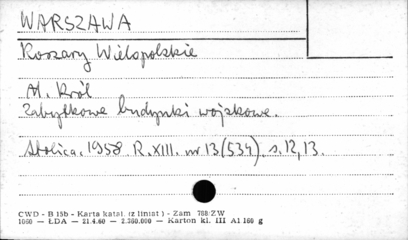 WARSZAWA
Koszary Wielopolskie
Al. Król
Zabytkowe budynki wojskowe.
Stolica. 1958. R. XIII. nr 13(534). s. 12, 13.
CWD - B 15b - Karta katal. (z liniat) - Zam 768/ZW
1060 — ŁDA — 21.4.60 — 2.360.000 — Karton kl. III A1 160 g